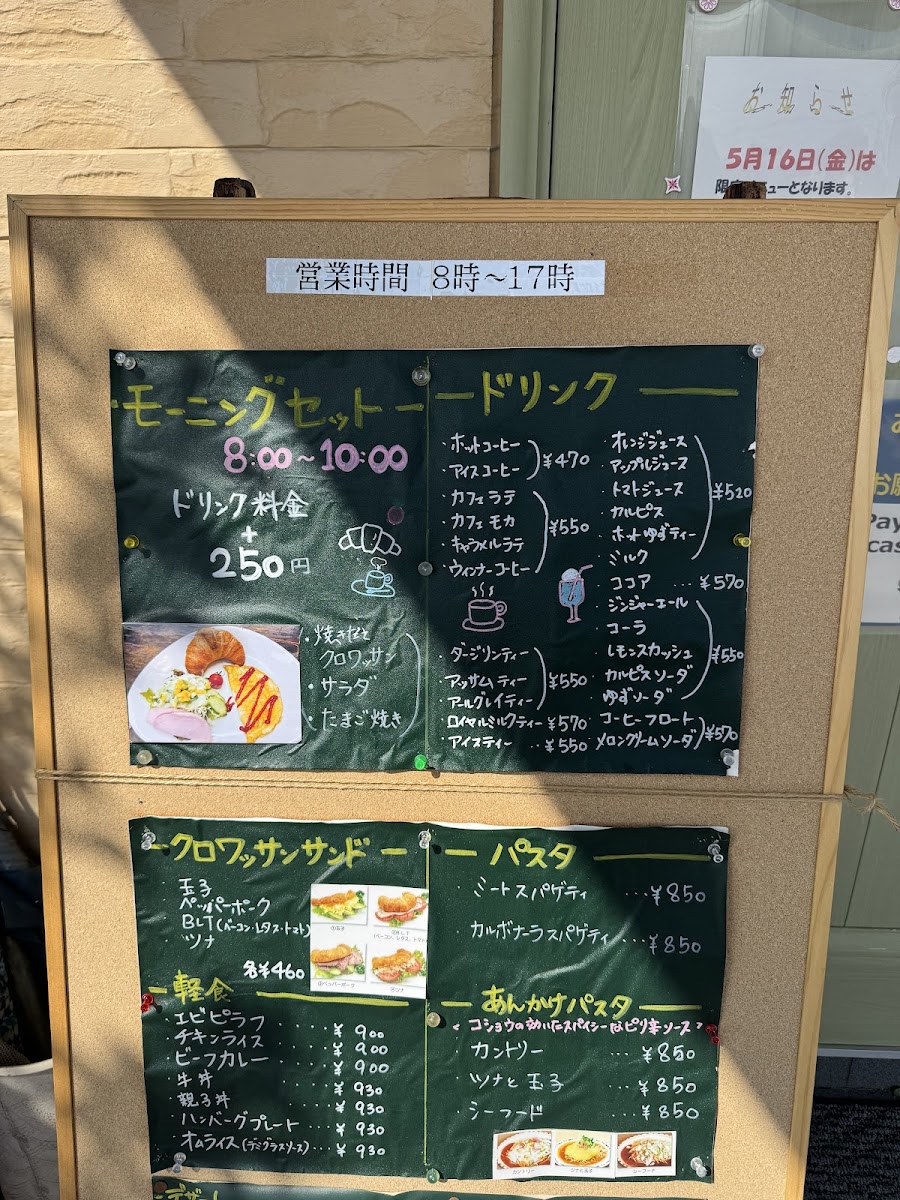 お知らせ
5月16日(金)は
限定メニューとなります。
営業時間 8時～17時
モーニングセット
8:00～10:00
ドリンク料金
+
250円
・焼きたて
クロワッサン
・サラダ
・たまご焼き
ドリンク
・ホットコーヒー
・アイスコーヒー
¥470
・カフェラテ
・カフェモカ
・キャラメルラテ
・ウィンナーコーヒー
¥550
・ダージリンティー
・アッサムティー
・アールグレイティー
¥550
・ロイヤルミルクティー ¥570
・アイスティー ‥¥550
・オレンジジュース
・アップルジュース
・トマトジュース
・カルピス
・ホットゆずティー
・ミルク
¥520
・ココア …¥570
・ジンジャーエール
・コーラ
・レモンスカッシュ
・カルピスソーダ
・ゆずソーダ
¥550
・コーヒーフロート
・メロンクリームソーダ
¥570
Pay
cas
クロワッサンサンド
・玉子
・ペッパーポーク
・BLT(ベーコン・レタス・トマト)
・ツナ
各¥460
軽食
・エビピラフ ‥‥‥ ¥900
・チキンライス ‥‥‥ ¥900
・ビーフカレー ‥‥‥ ¥900
・牛丼 ‥‥‥ ¥930
・親子丼 ‥‥‥ ¥930
・ハンバーグプレート ‥‥ ¥930
・オムライス(デミグラスソース)‥‥ ¥930
パスタ
・ミートスパゲティ …¥850
・カルボナーラスパゲティ …¥850
あんかけパスタ
<コショウの効いたスパイシーなピリ辛ソース>
・カントリー …¥850
・ツナと玉子 …¥850
・シーフード …¥850
カントリー
ツナと玉子
シーフード
デザート